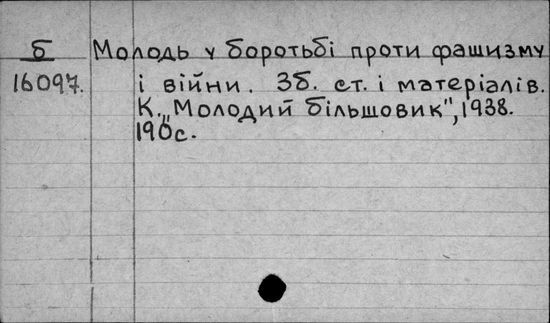 Б Молодь у боротьбі проти фашизму
16097. і війни. Зб. ст. і матеріалів.
К. „Молодий більшовик", 1938.
190с.